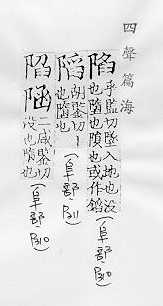 四聲篇海
陷
乎監切墜入地也没
也墮也隤也或作錎
(阜部 P310)
胡鑒切
也墮也
(阜部 P311)
陷
二咸鑒切
没也隤也
(阜部 P310)